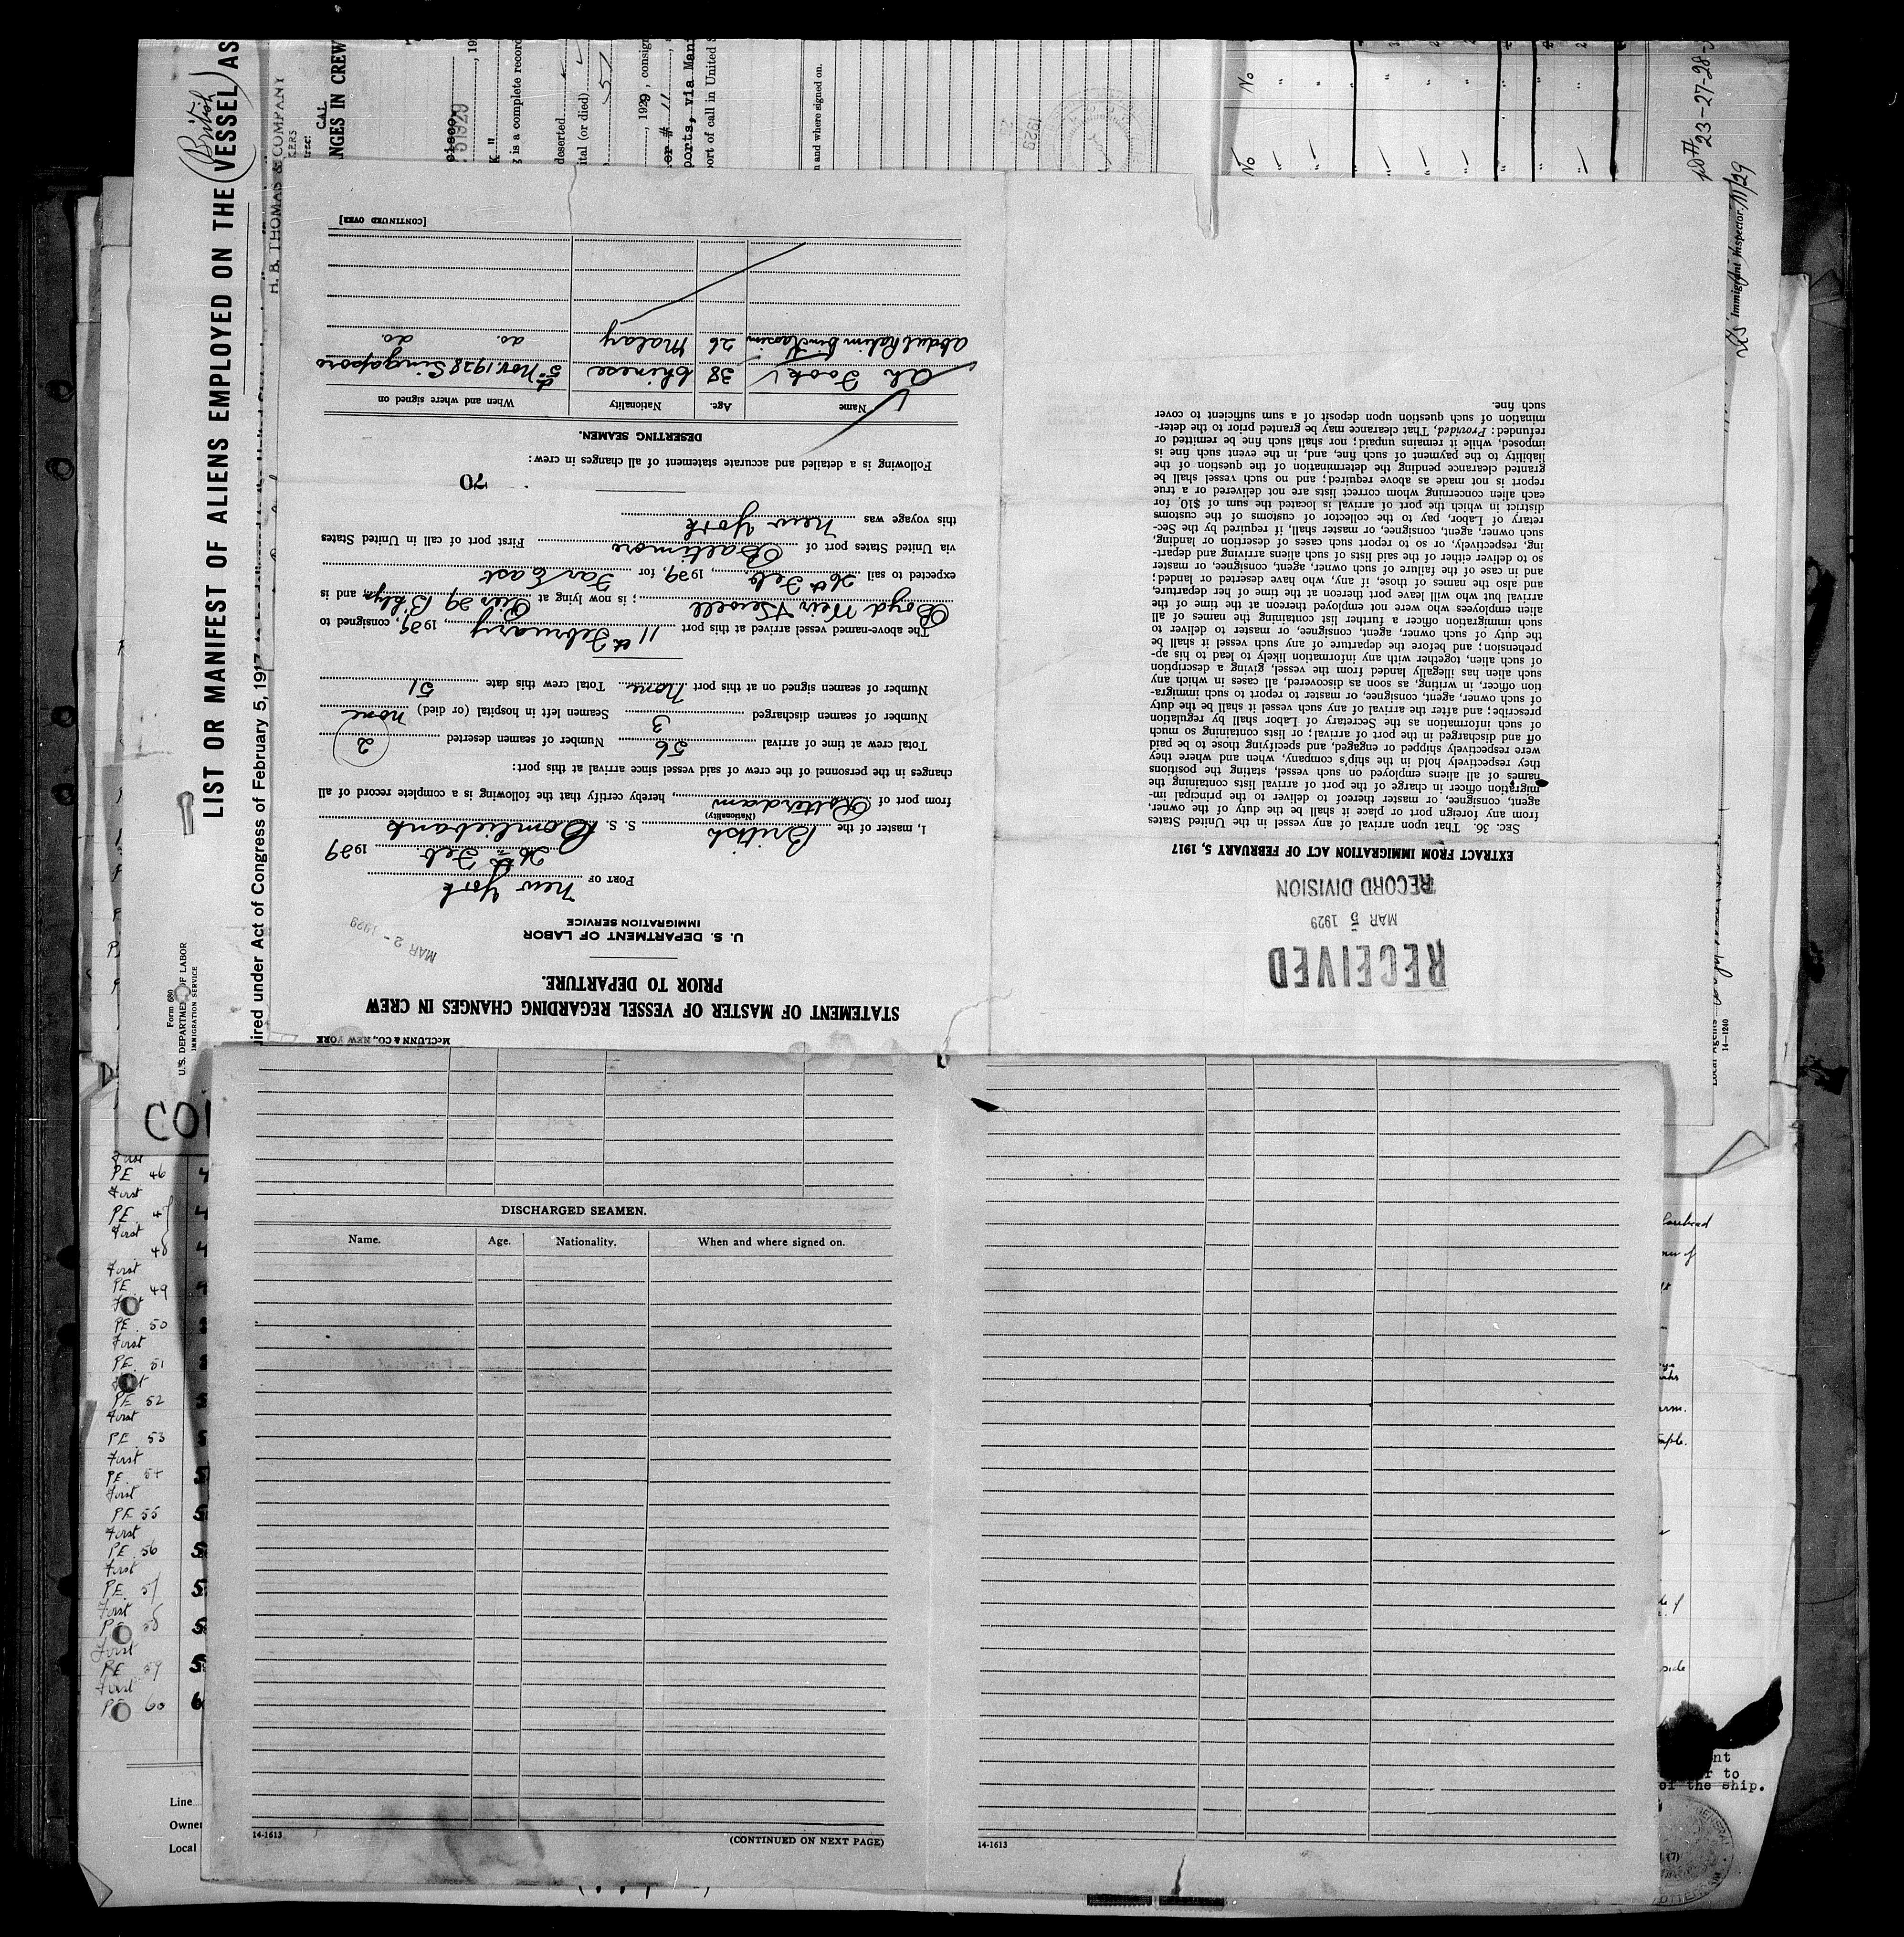 McCLUNN & CO., NEW YORK
STATEMENT OF MASTER OF VESSEL REGARDING CHANGES IN CREW
PRIOR TO DEPARTURE.
U. S. DEPARTMENT OF LABOR
IMMIGRATION SERVICE
MAR 2 - 1929
PORT OF New York
26th Feb. 1929
I, master of the British S. S. 
(Nationality)
from port of Rotterdam, hereby certify that the following is a complete record of all
changes in the personnel of the crew of said vessel since arrival at this port:
Total crew at time of arrival 56 Number of seamen deserted 2
Number of seamen discharged 3 Seamen left in hospital (or died) none
Number of seamen signed on at this port None. Total crew this date 51
The above-named vessel arrived at this port 11th February, 1929, consigned to
Boyd Weir & Sewell; is now lying at Pier 29 B'klyn, and is
expected to sail 26th Feb., 1929, for Far East
via United States port of Baltimore First port of call in United States
this voyage was New York
70
Following is a detailed and accurate statement of all changes in crew:
DESERTING SEAMEN.
Name Age. Nationality When and where signed on
Ah Fook 38 Chinese 5th Nov. 1928 Singapore
Abdul Rahim bin Kassim 26 Malay do. do.
[CONTINUED OVER]
RECEIVED
MAR 5 1929
RECORD DIVISION
EXTRACT FROM IMMIGRATION ACT OF FEBRUARY 5, 1917
SEC. 36. That upon arrival of any vessel in the United States
from any foreign port or place it shall be the duty of the owner,
agent, consignee, or master thereof to deliver to the principal im-
migration officer in charge of the port of arrival lists containing the
names of all aliens employed on such vessel, stating the positions
they respectively hold in the ship's company, when and where they
were respectively shipped or engaged, and specifying those to be paid
off and discharged in the port of arrival; or lists containing so much
of such information as the Secretary of Labor shall by regulation
prescribe; and after the arrival of any such vessel it shall be the duty
of such owner, agent, consignee, or master to report to such immigra-
tion officer, in writing, as soon as discovered, all cases in which any
such alien has illegally landed from the vessel, giving a description
of such alien, together with any information likely to lead to his ap-
prehension; and before the departure of any such vessel it shall be
the duty of such owner, agent, consignee, or master to deliver to
such immigration officer a further list containing the names of all
alien employees who were not employed thereon at the time of the
arrival but who will leave port thereon at the time of her departure,
and also the names of those, if any, who have deserted or landed;
and in case of the failure of such owner, agent, consignee, or master
so to deliver either of the said lists of such aliens arriving and depart-
ing, respectively, or so to report such cases of desertion or landing,
such owner, agent, consignee, or master shall, if required by the Sec-
retary of Labor, pay to the collector of customs of the customs
district in which the port of arrival is located the sum of $10 for
each alien concerning whom correct lists are not delivered or a true
report is not made as above required; and no such vessel shall be
granted clearance pending the determination of the question of the
liability to the payment of such fine, and, in the event such fine is
imposed, while it remains unpaid; nor shall such fine be remitted or
refunded: Provided, That clearance may be granted prior to the deter-
mination of such question upon deposit of a sum sufficient to cover
such fine.
Form 680
U.S. DEPARTMENT OF LABOR
IMMIGRATION SERVICE
LIST OR MANIFEST OF ALIENS EMPLOYED ON THE (British) VESSEL AS
ired under Act of Congress of February 5, 1917
H. B. THOMAS & COMPANY
CAL
NGES IN CREW
1929
is a complete record
deserted
ital (or died)
51
, 1929, consign
ports, via Man
ort of call in United
n and where signed on.
1929
No
No
23-27-28-
Immigrant Inspector.
11/29
14—1240
DISCHARGED SEAMEN.
Name. Age. Nationality. When and where signed on.
14-1613
(CONTINUED ON NEXT PAGE)
14-1613
PE 46
First
PE 47
First
48
First
PE 49
PE 50
First
PE 51
PE 52
First
PE 53
First
PE 54
First
PE 55
First
PE 56
First
PE 57
First
PE 58
First
PE 59
First
PE 60
Line
Owner
Local
nt
r to
of the ship.
(7)